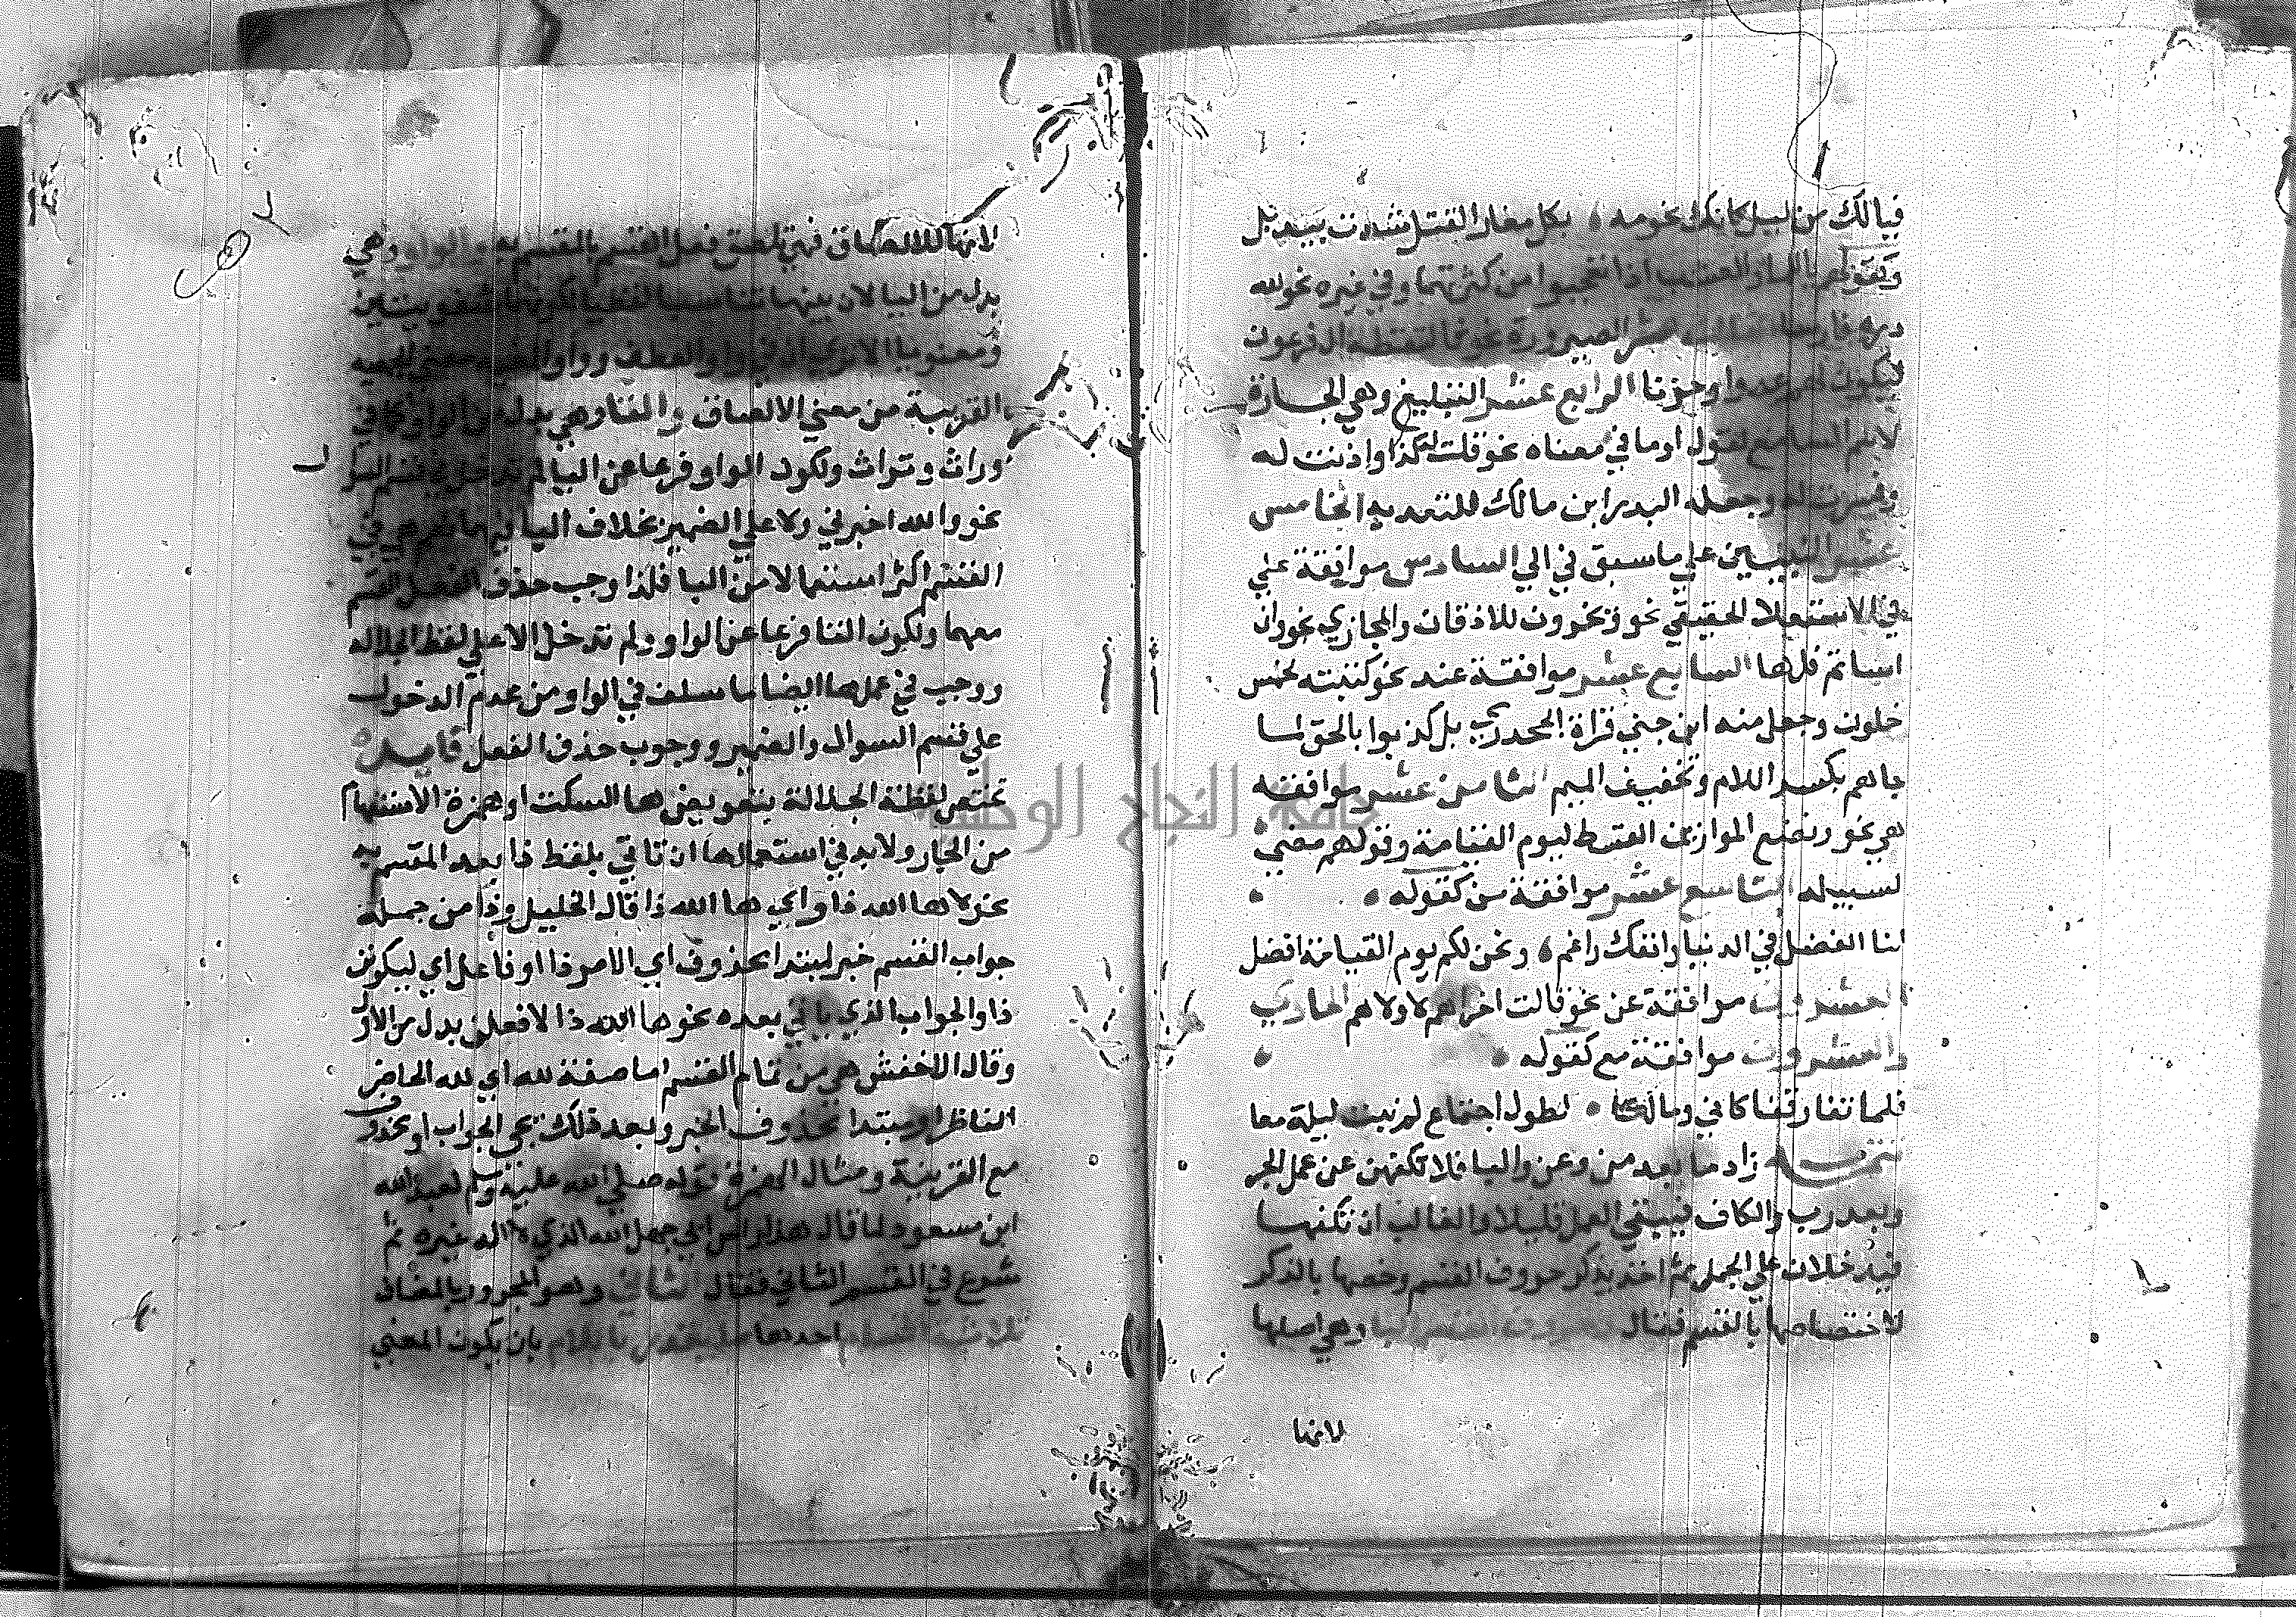 فيالك من ليل كان نجومه ، بكل مغار الفتل شدت بيذبل
وكقولهم يا للماء والعشب اذا تعجبوا من كثرتهما وفي غيره نحو لله
دره فارسا عشر الصيرورة نحو فالتقطه ال فرعون
ليكون لهم عدوا وحزنا الرابع عشر التبليغ وهي الجارة
لاسم السامع لقول او ما في معناه نحو قلت له كذا واذنت له
وفسرت له وجعله البدر ابن مالك للتعديه الخامس
عشر التبيين على ما سبق في الى السادس موافقة على
في الاستعلاء الحقيقي نحو ويخرون للاذقان والمجازي نحو وان
اساتم فلها السابع عشر موافقة عند نحو كتبته لخمس
خلون وجعل منه ابن جني قراة الجحدري بل كذبوا بالحق لما
جاهم بكسر اللام وتخفيف الميم الثامن عشر موافقته
في نحو ونضع الموازين القسط ليوم القيامة وقولهم مضى
لسبيله التاسع عشر موافقة من كقوله
لنا الفضل في الدنيا وانفك راغم ، ونحن لكم يوم القيامة افضل
العشرون موافقة عن نحو قالت اخراهم لاولاهم الحادي
والعشرون موافقة مع كقوله
فلما تفارقنا كاني ومالكا لطول اجتماع لم نبت ليلة معا
تتمه زاد ما بعد من وعن والبا فلا تكفهن عن عمل الجر
وبعد رب والكاف فيبقى العمل قليلا والغالب ان تكفهما
فيدخلان على الجمل ثم اخذ يذكر حروف القسم وخصها بالذكر
لاختصاصها بالقسم فقال وحروف القسم البا وهي اصلها
لانها
لانها للالصاق فهي تلصق فعل القسم بالمقسم به والواو وهي
بدل من البا لان بينهما تناسبا لفظيا لكونهما شفويتين
ومعنويا الا ترى ان في واو العطف وواو المعية معنى الجمعيه
القريبة من معنى الالصاق والتا وهي بدل عن الواو كما في
وراث وتراث ولكون الواو فرعا عن البا لم تدخل في قسم السوال
نحو والله اخبرني ولا على الضمير بخلاف البا فيهما نعم هي في
القسم اكثر استعمالا من البا فلذا وجب حذف الفعل القسم
معهما ولكون التا فرعا عن الواو ولم تدخل الا على لفظ الجلاله
ووجب في عملها ايضا ما سلف في الواو من عدم الدخول
على قسم السوال والضمير ووجوب حذف الفعل فايده
تختص لفظة الجلالة بتعويض ها السكت او همزة الاستفهام
من الجار ولا بد في استعمالها ان تاتي بلفظ ذا بعد المقسم به
نحو لا ها الله ذا واي ها الله ذا قال الخليل وذا من جملة
جواب القسم خبر لمبتدا محذوف اي الامر ذا او فاعل اي ليكونن
ذا والجواب الذي ياتي بعده نحو ها الله ذا لافعلن بدل من الاول
وقال الاخفش هي من تمام القسم اما صفة لله اي لله الحاضر
الناظر او مبتدا محذوف الخبر وبعد ذلك يجي الجواب او يحذف
مع القرينة ومثال الهمزة قوله صلى الله عليه وسلم لعبد الله
ابن مسعود لما قال هذا راس ابي جهل الله الذي لا اله غيره ثم
شرع في القسم الثاني فقال الثاني وهو المجرور بالمضاف
ثلاثة اقسام احدها ما يقدر باللام بان يكون المعنى
جامعة النجاح الوطنية